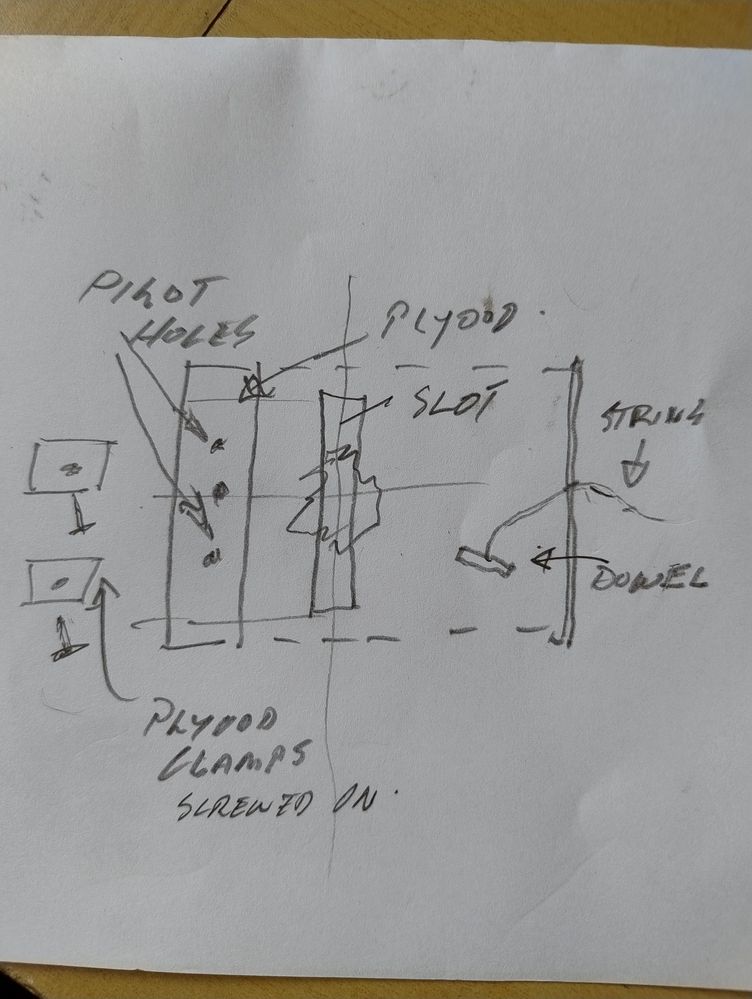 PILOT
HOLES
PLYOOD.
SLOT
STRING
DOWEL
PLYOOD
CLAMPS
SCREWED ON.